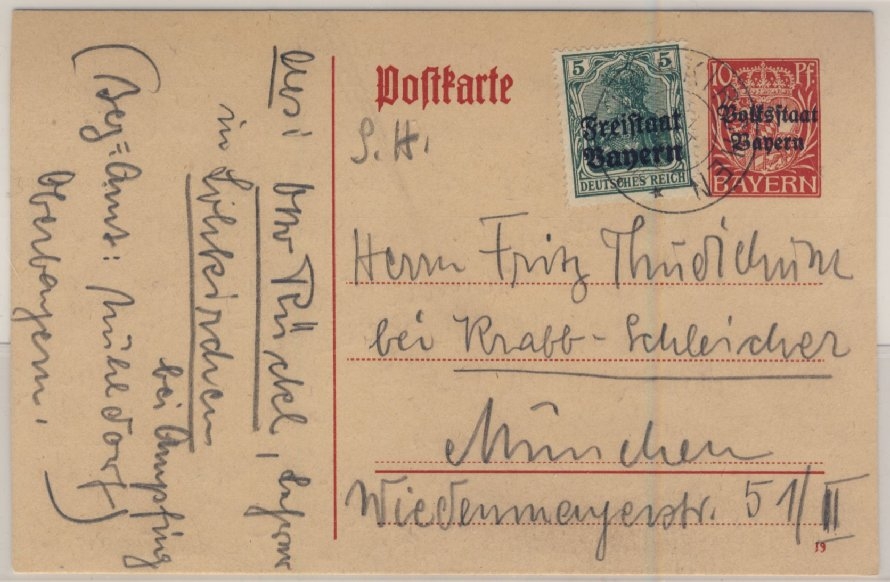 Postkarte
S. H.
5 5
Freistaat
Bayern
DEUTSCHES REICH
10 Pf.
Volksstaat
Bayern
BAYERN
Herrn Fritz Thudichum
bei Krabb-Schleicher
München
Wiedenmayerstr. 51/III
19
Otto Rückl,
in Lohkirchen
bei Ampfing
(Bez=Amt: Mühldorf)
Oberbayern.